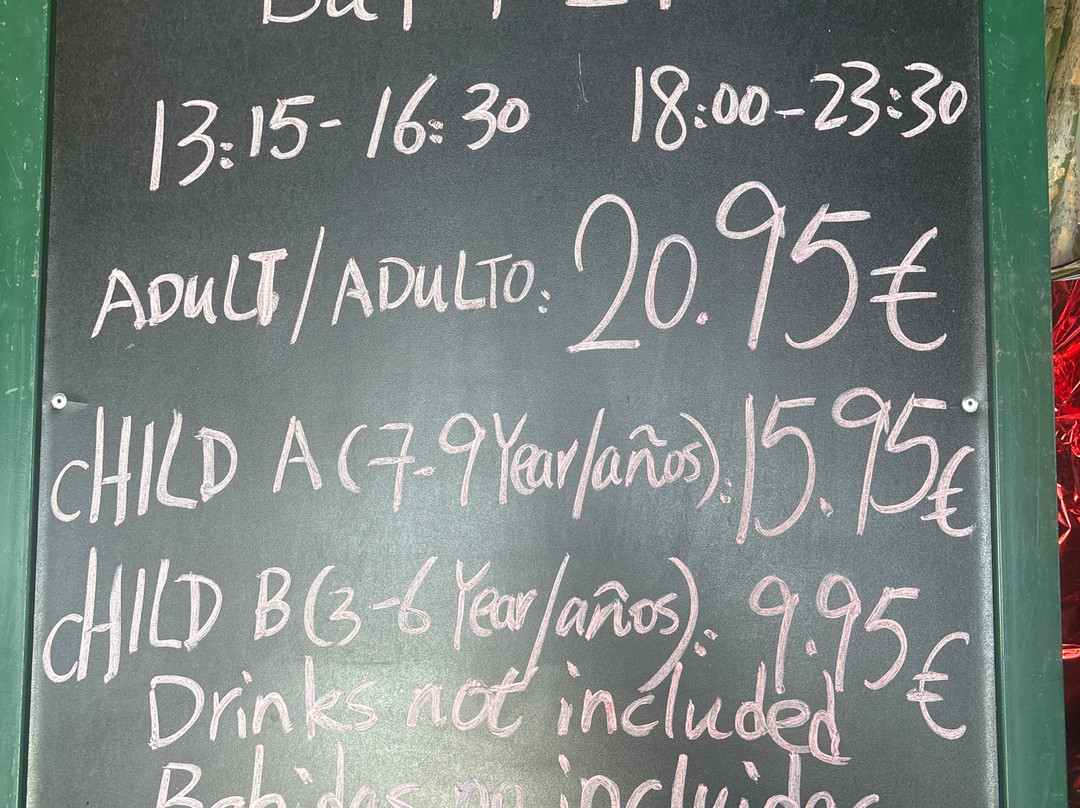 13:15-16:30 18:00-23:30
ADULT/ADULTO: 20.95€
CHILD A (7-9 Year/años): 15.95€
CHILD B (3-6 Year/años): 9.95€
Drinks not included
Bebidas no incluidas